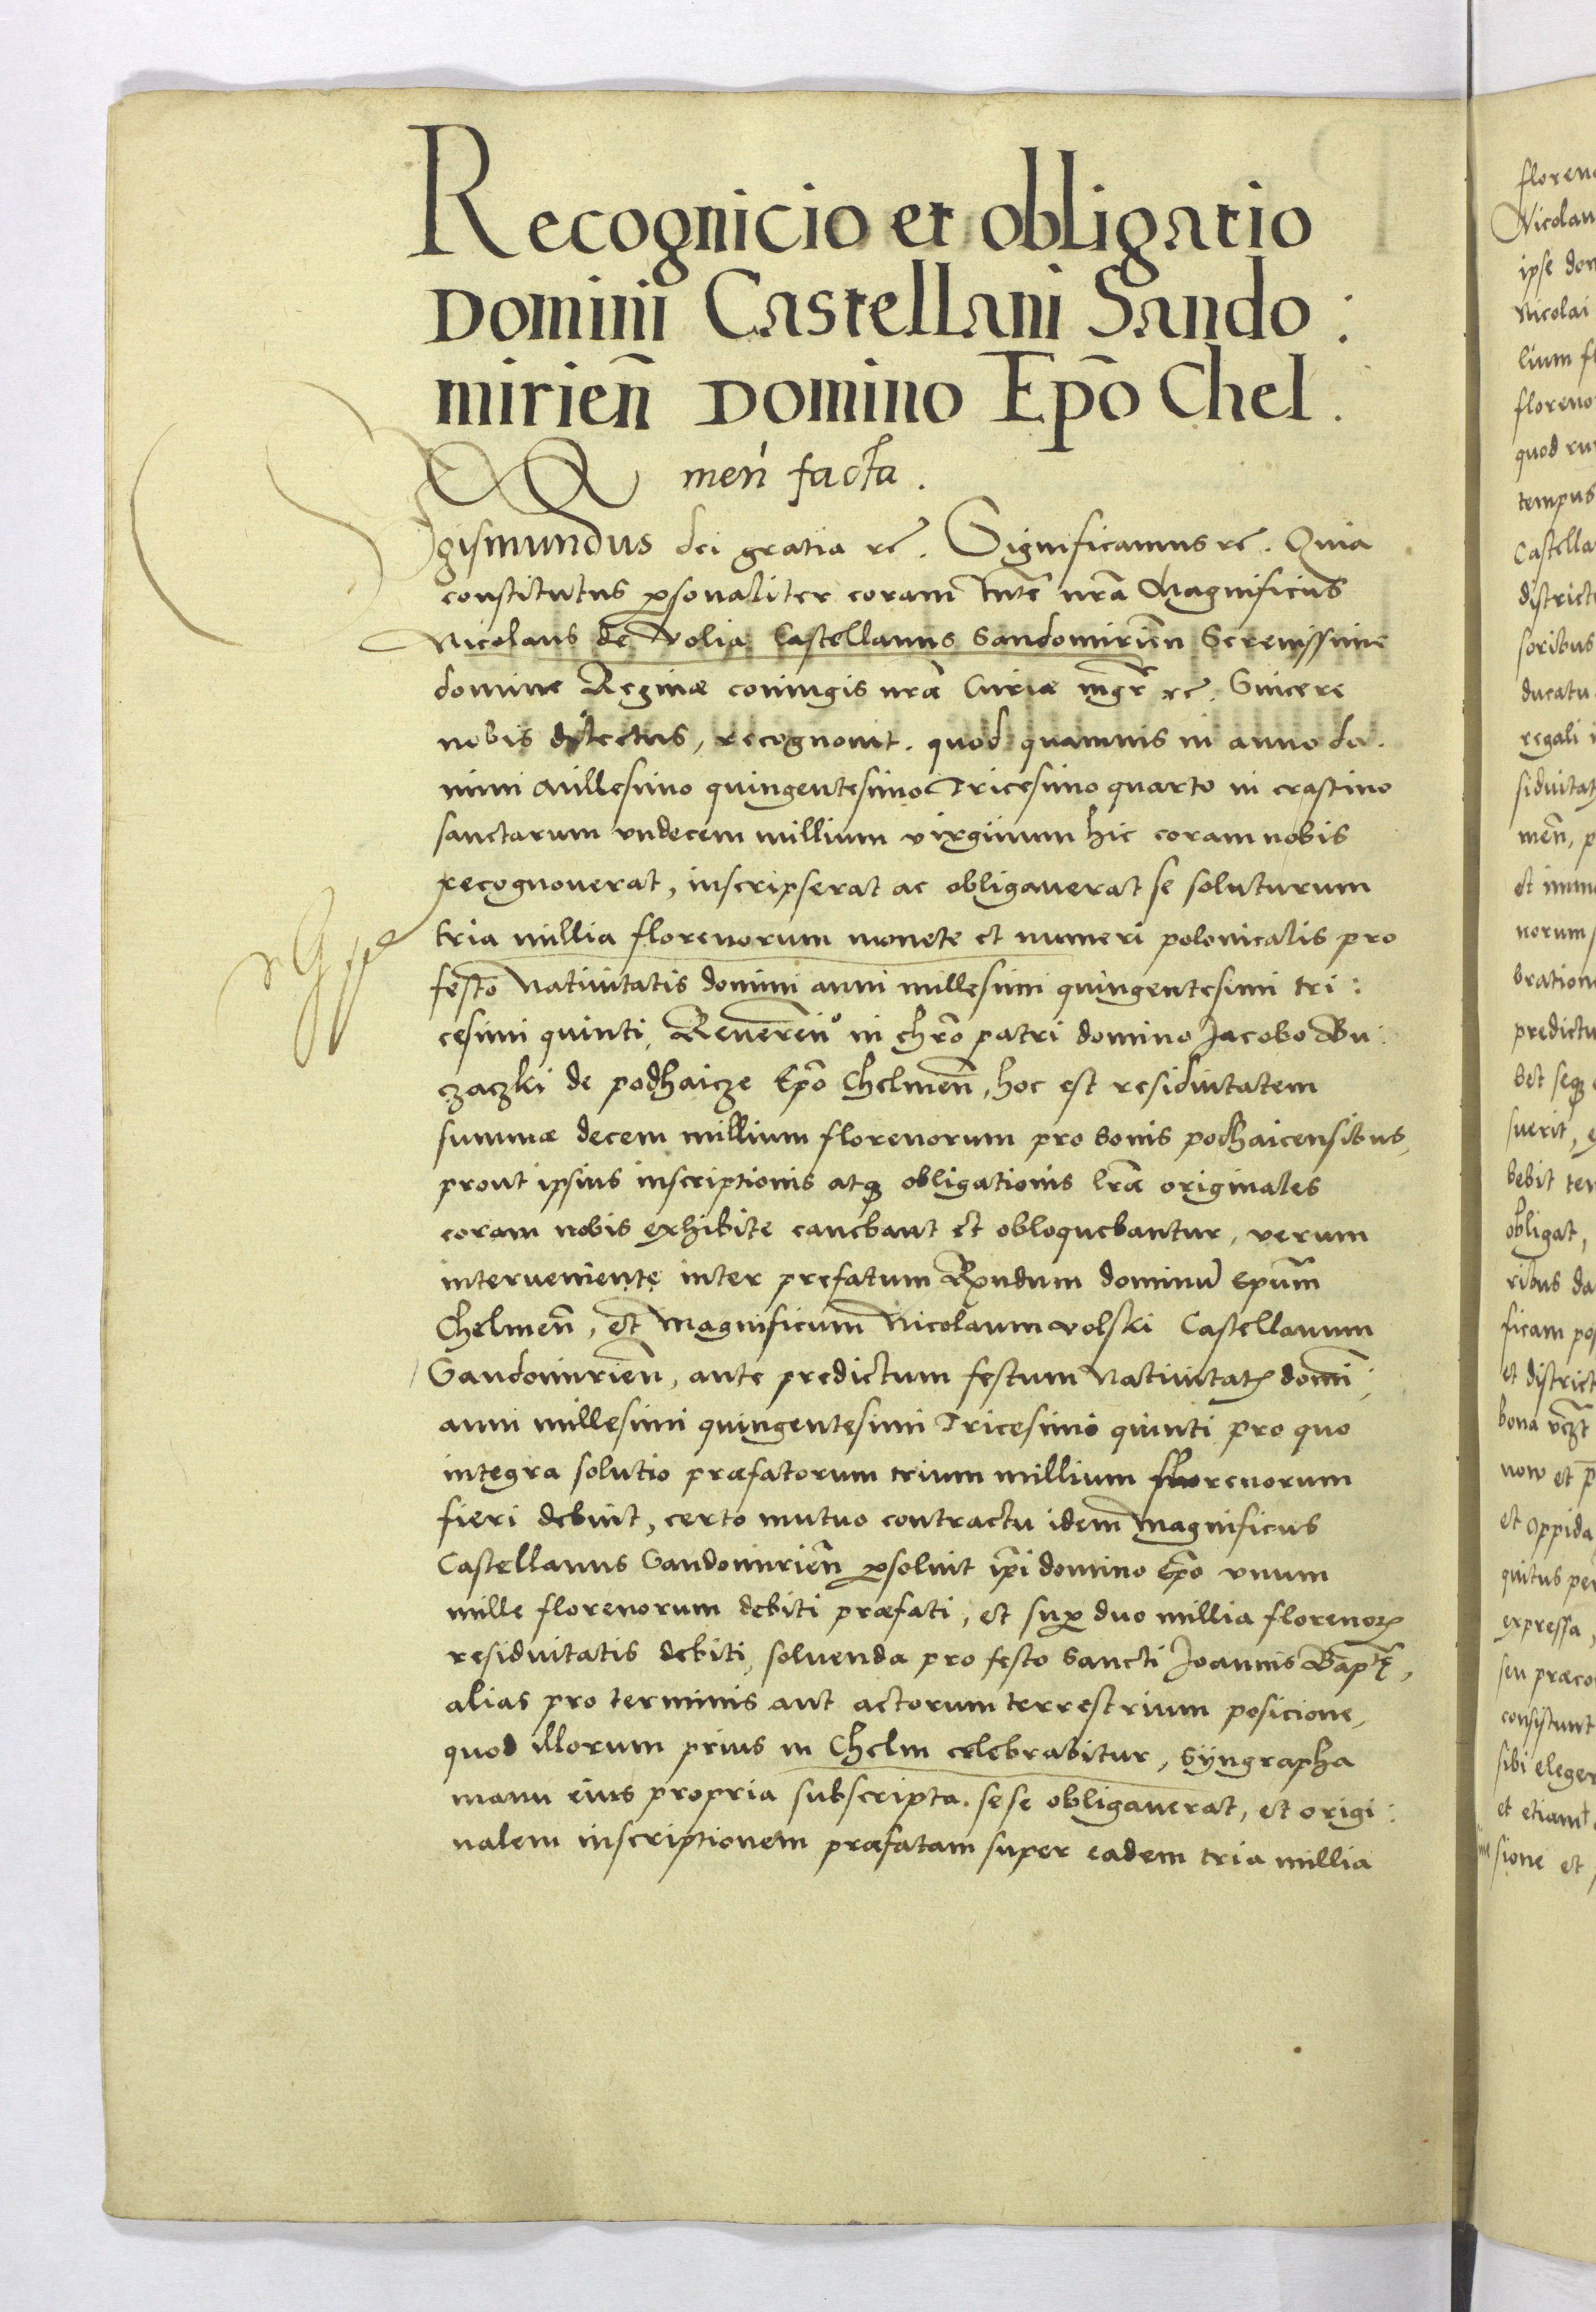 Recognicio et obligatio
Domini Castellani Sando:
mirien̄ Domino Ep̄o Chel.
men̄ facta.
Sigismundus dei gratia rc̄. Significamus rc̄. Quia
constitutus ꝑsonaliter coram mt̄e nrā Magnificus
Nicolaus de Volia Castellanus Sandomirien̄ Serenissime
domine Reginæ coniugis nrāe Curiæ mgr̄ rc̄. Sincere
nobis dilectus, recognouit. quod quamuis in anno do.
mini Millesimo quingentesimo Tricesimo quarto in crastino
sanctarum vndecem millium virginum hic coram nobis
recognouerat, inscripserat ac obligauerat se soluturum
tria millia florenorum monete et numeri polonicalis pro
festo Natiuitatis domini anni millesimi quingentesimi tri:
cesimi quinti, Reueren̄o in chr̄o patri domino Jacobo Bu:
czaczki de podhaicze Ep̄o Chelmen̄, hoc est residuitatem
summæ decem millium florenorum pro bonis podhaicensibus,
prout ipsius inscriptionis atqꝫ obligationis lrāe originales
coram nobis exhibite canebant et obloquebantur, verum
interueniente inter prefatum Rn̄dum dominū Epūm
Chelmen̄, et Magnificum Nicolaum volski Castellanum
Sandomirien̄, ante predictum festum Natiuitatꝭ domī:
anni millesimi quingentesimi Tricesimi quinti pro quo
integra solutio præfatorum trium millium florenorum
fieri debuit, certo mutuo contractu idem Magnificus
Castellanus Sandomirien̄ ꝑsoluit ip̄i domino Ep̄o vnum
mille florenorum debiti præfati, et suꝑ duo millia florenoꝝ
residuitatis debiti, soluenda pro festo Sancti Joannis Bapte,
alias pro terminis aut actorum terrestrium posicione,
quod illorum prius in Chelm celebrabitur, Syngrapha
manu eius propria subscripta. sese obligauerat, et origi:
nalem inscriptionem præfatam super eadem tria millia
Nicolau
ipse
Nicolai
lium
floreno
quod
tempus
Castella
soribus
ducatu
regali
norum
predictu
obligat,
ficam
bona
et oppida
expressa,
consistunt
sibi
sione et